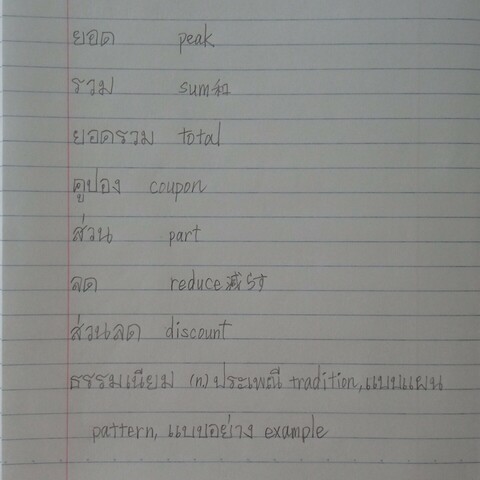 ยอด peak
รวม sum 和
ยอดรวม total
คูปอง coupon
ส่วน part
ลด reduce 減らす
ส่วนลด discount
ธรรมเนียม (n) ประเพณี tradition, แบบแผน
pattern, แบบอย่าง example